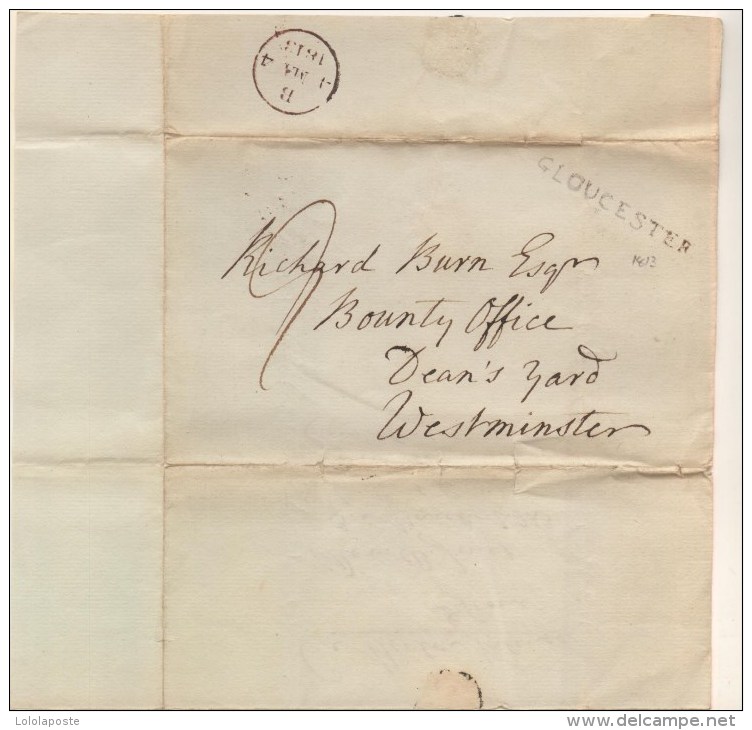 B
1813
GLOUCESTER
1813
9
Richard Burn Esqr
Bounty Office
Dean's Yard
Westminster
Lololaposte
www.delcampe.net